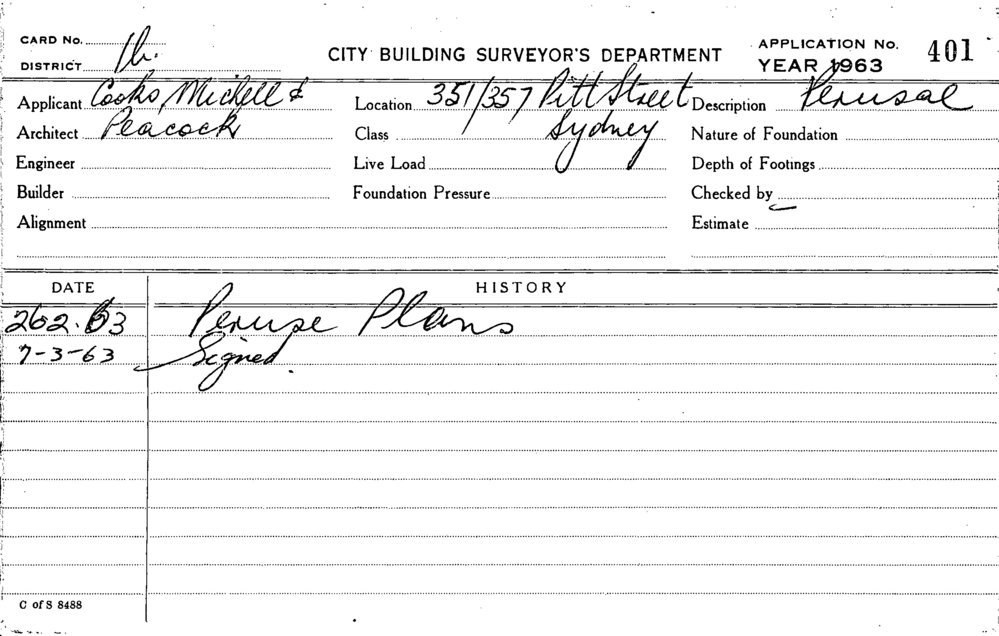 CARD No.
DISTRICT
CITY BUILDING SURVEYOR'S DEPARTMENT
APPLICATION No. 401
YEAR 1963
Applicant Cooks, Michell &
Architect Peacock
Engineer
Builder
Alignment
Location 351/357 Pitt Street
Class Sydney
Live Load
Foundation Pressure
Description Perusal
Nature of Foundation
Depth of Footings
Checked by
Estimate
DATE HISTORY
26 2. 63 Peruse Plans
7-3-63 Signed.
C of S 8488